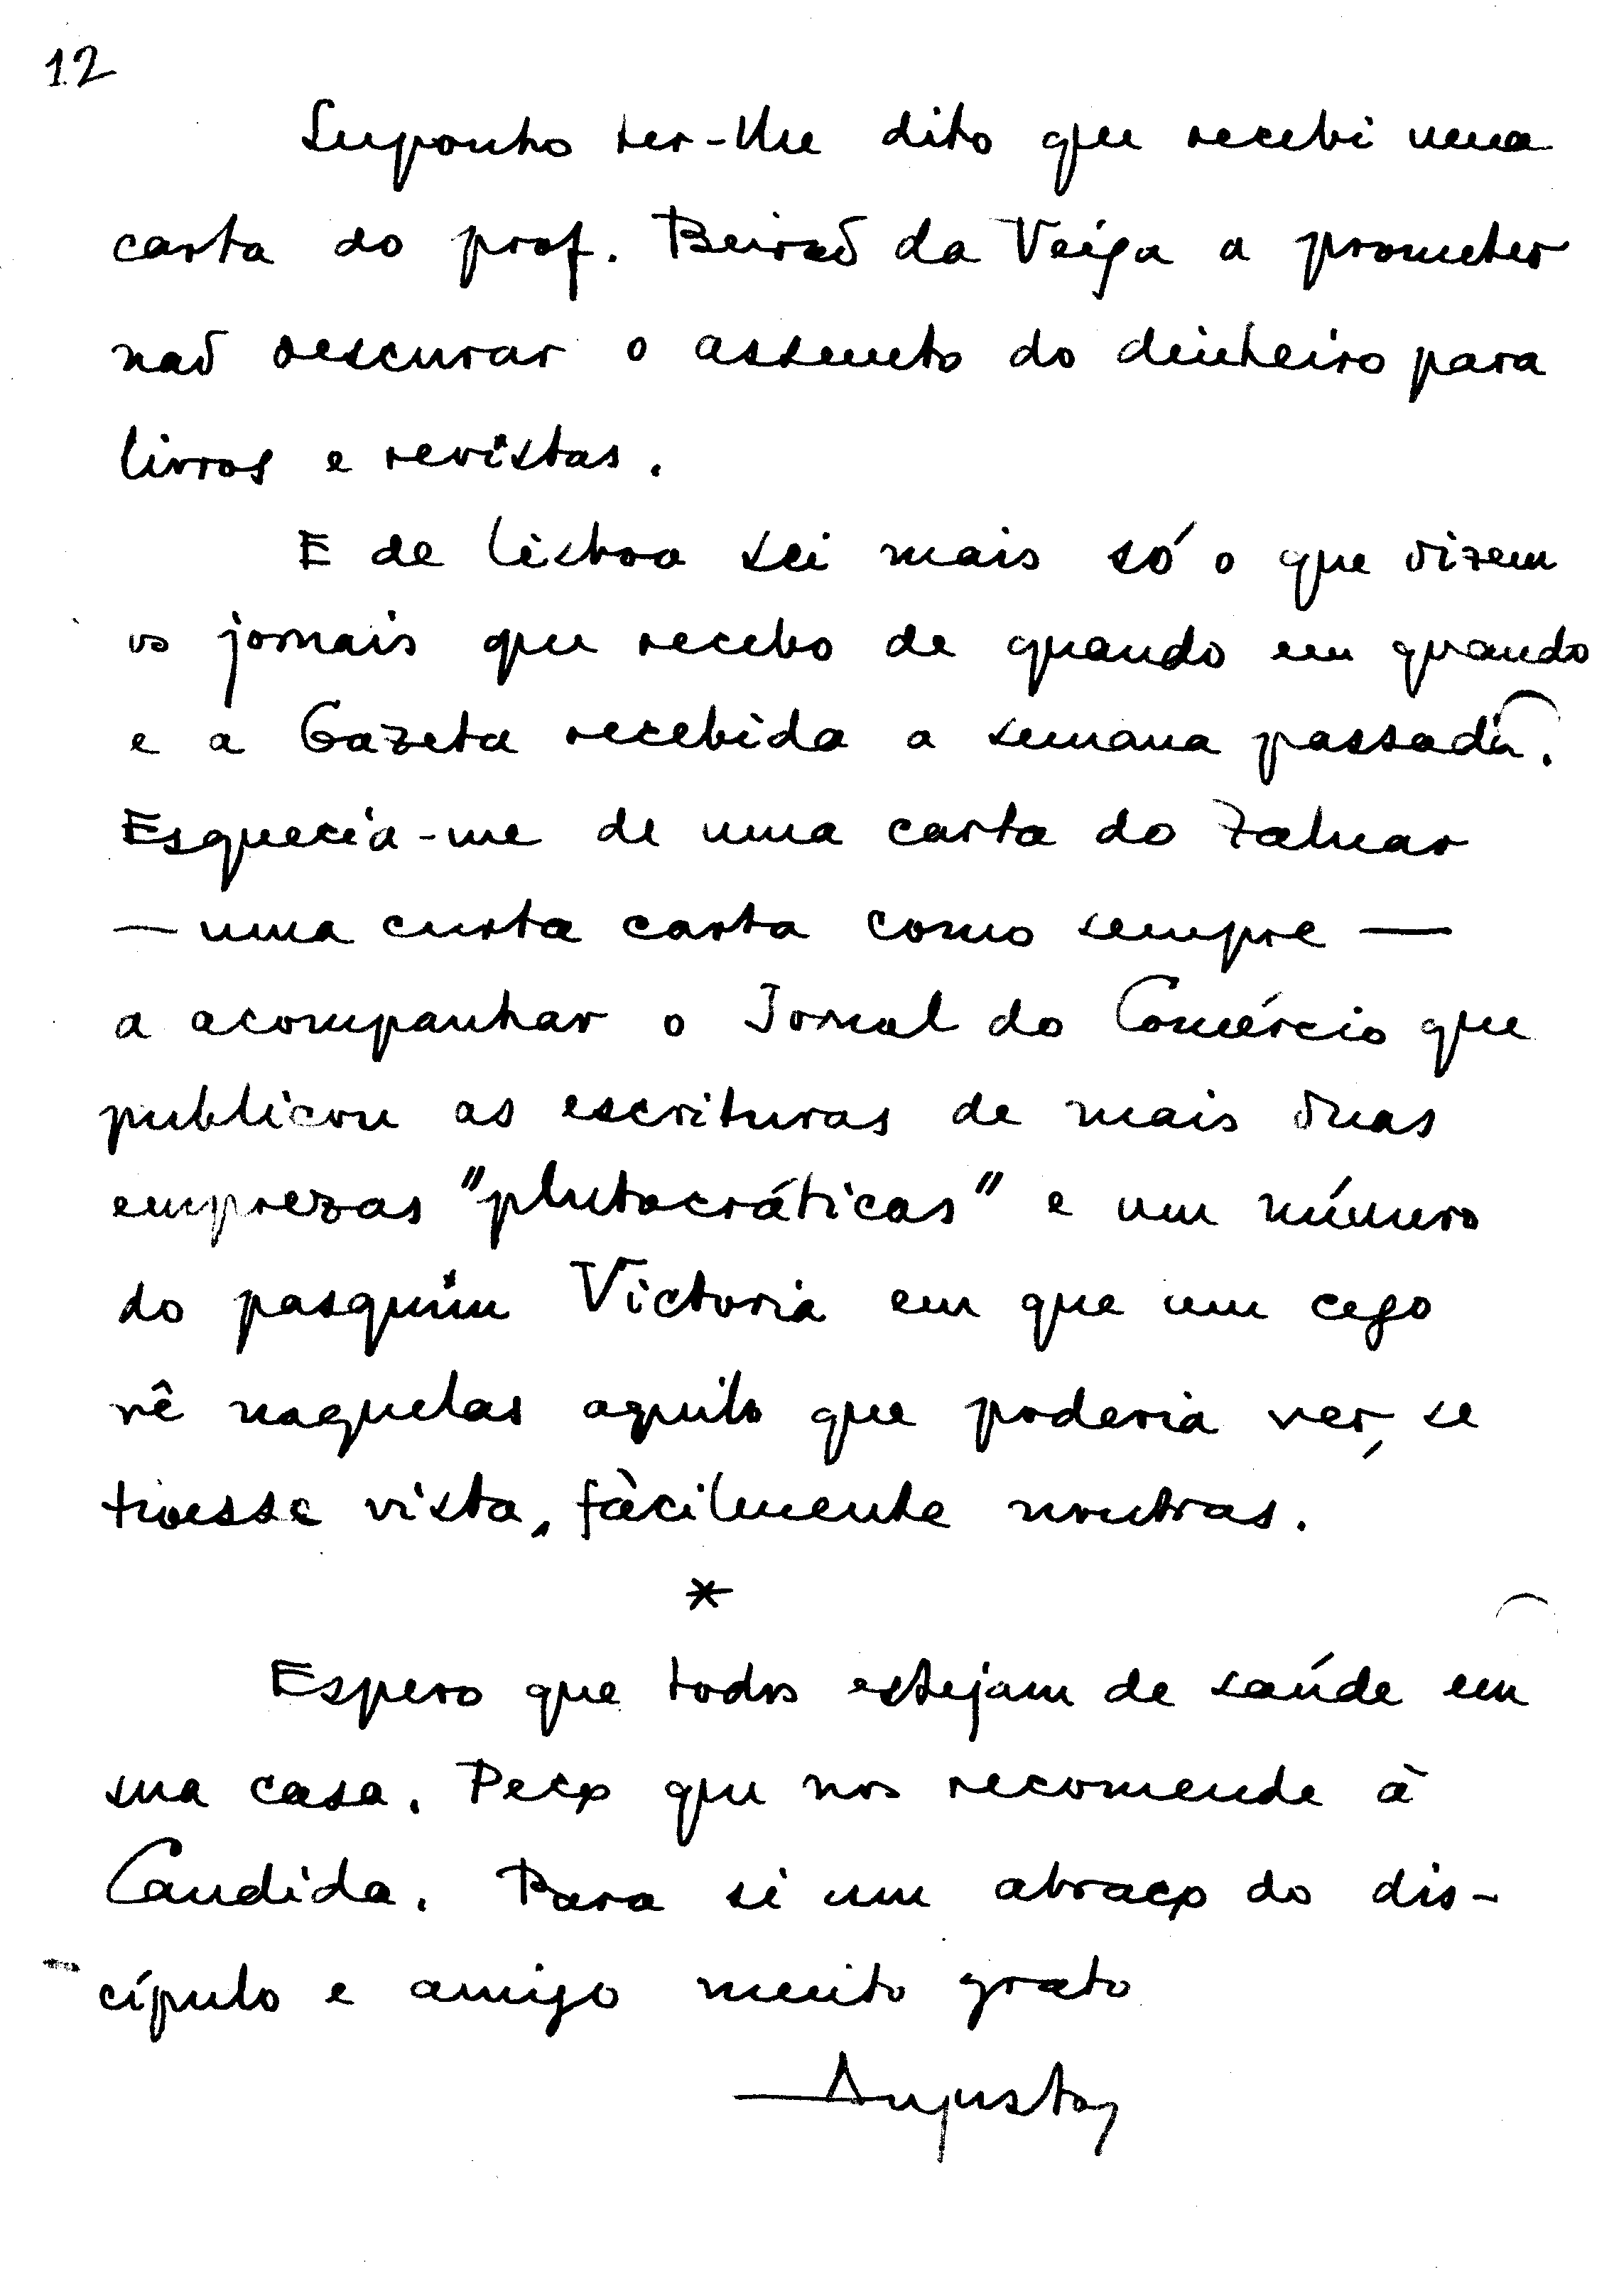 12
Suponho ter-lhe dito que recebi uma
carta do prof. Beirão da Veiga a prometer
não descurar o assunto do dinheiro para
livros e revistas.
E de Lisboa sei mais só o que dizem
os jornais que recebo de quando em quando
e a Gazeta recebida a semana passada.
Esquecia-me de uma carta do Zaluar
— uma curta carta como sempre —
a acompanhar o Jornal do Comércio que
publicou as escrituras de mais duas
emprezas "plutocráticas" e um número
do pasquim Victoria em que um cego
vê naquelas aquilo que poderia ver, se
tivesse vista, fàcilmente noutras.
*
Espero que todos estejam de saúde em
sua casa. Peço que nos recomende à
Candida. Para si um abraço do dis-
cípulo e amigo muito grato
Augusto